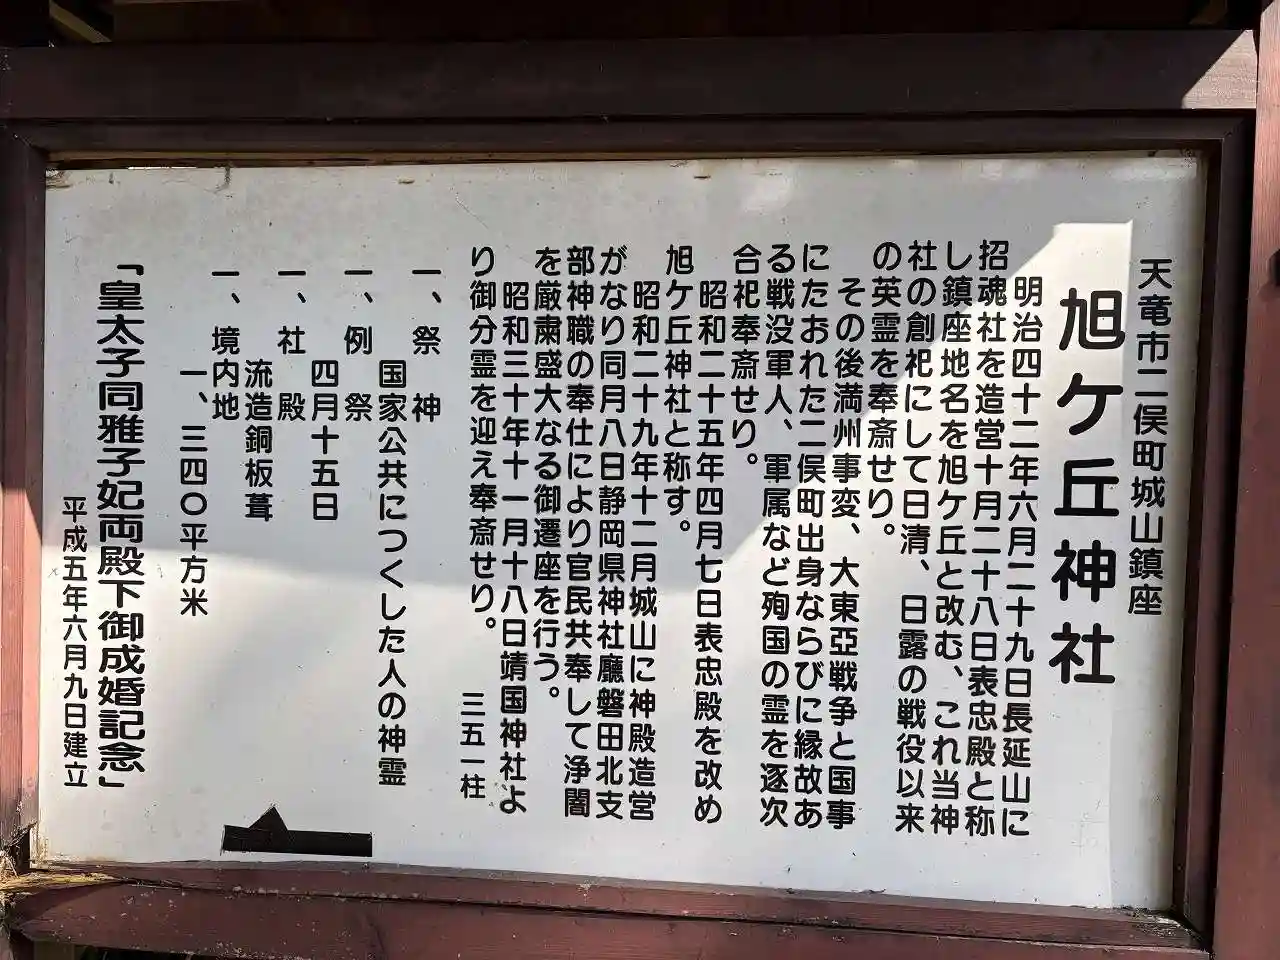 天竜市二俣町城山鎮座
旭ケ丘神社
明治四十二年六月二十九日長延山に
招魂社を造営十月二十八日表忠殿と称
し鎮座地名を旭ケ丘と改む、これ当神
社の創祀にして日清、日露の戦役以来
の英霊を奉斎せり。
その後満州事変、大東亞戦争と国事
にたおれた二俣町出身ならびに縁故あ
る戦没軍人、軍属など殉国の霊を逐次
合祀奉斎せり。
昭和二十五年四月七日表忠殿を改め
旭ケ丘神社と称す。
昭和二十九年十二月城山に神殿造営
がなり同月八日静岡県神社廳磐田北支
部神職の奉仕により官民共奉して浄闇
を厳粛盛大なる御遷座を行う。
昭和三十年十一月十八日靖国神社よ
り御分霊を迎え奉斎せり。
三五一柱
一、祭神
国家公共につくした人の神霊
一、例祭
四月十五日
一、社殿
流造銅板葺
一、境内地
一、三四〇平方米
「皇太子同雅子妃両殿下御成婚記念」
平成五年六月九日建立